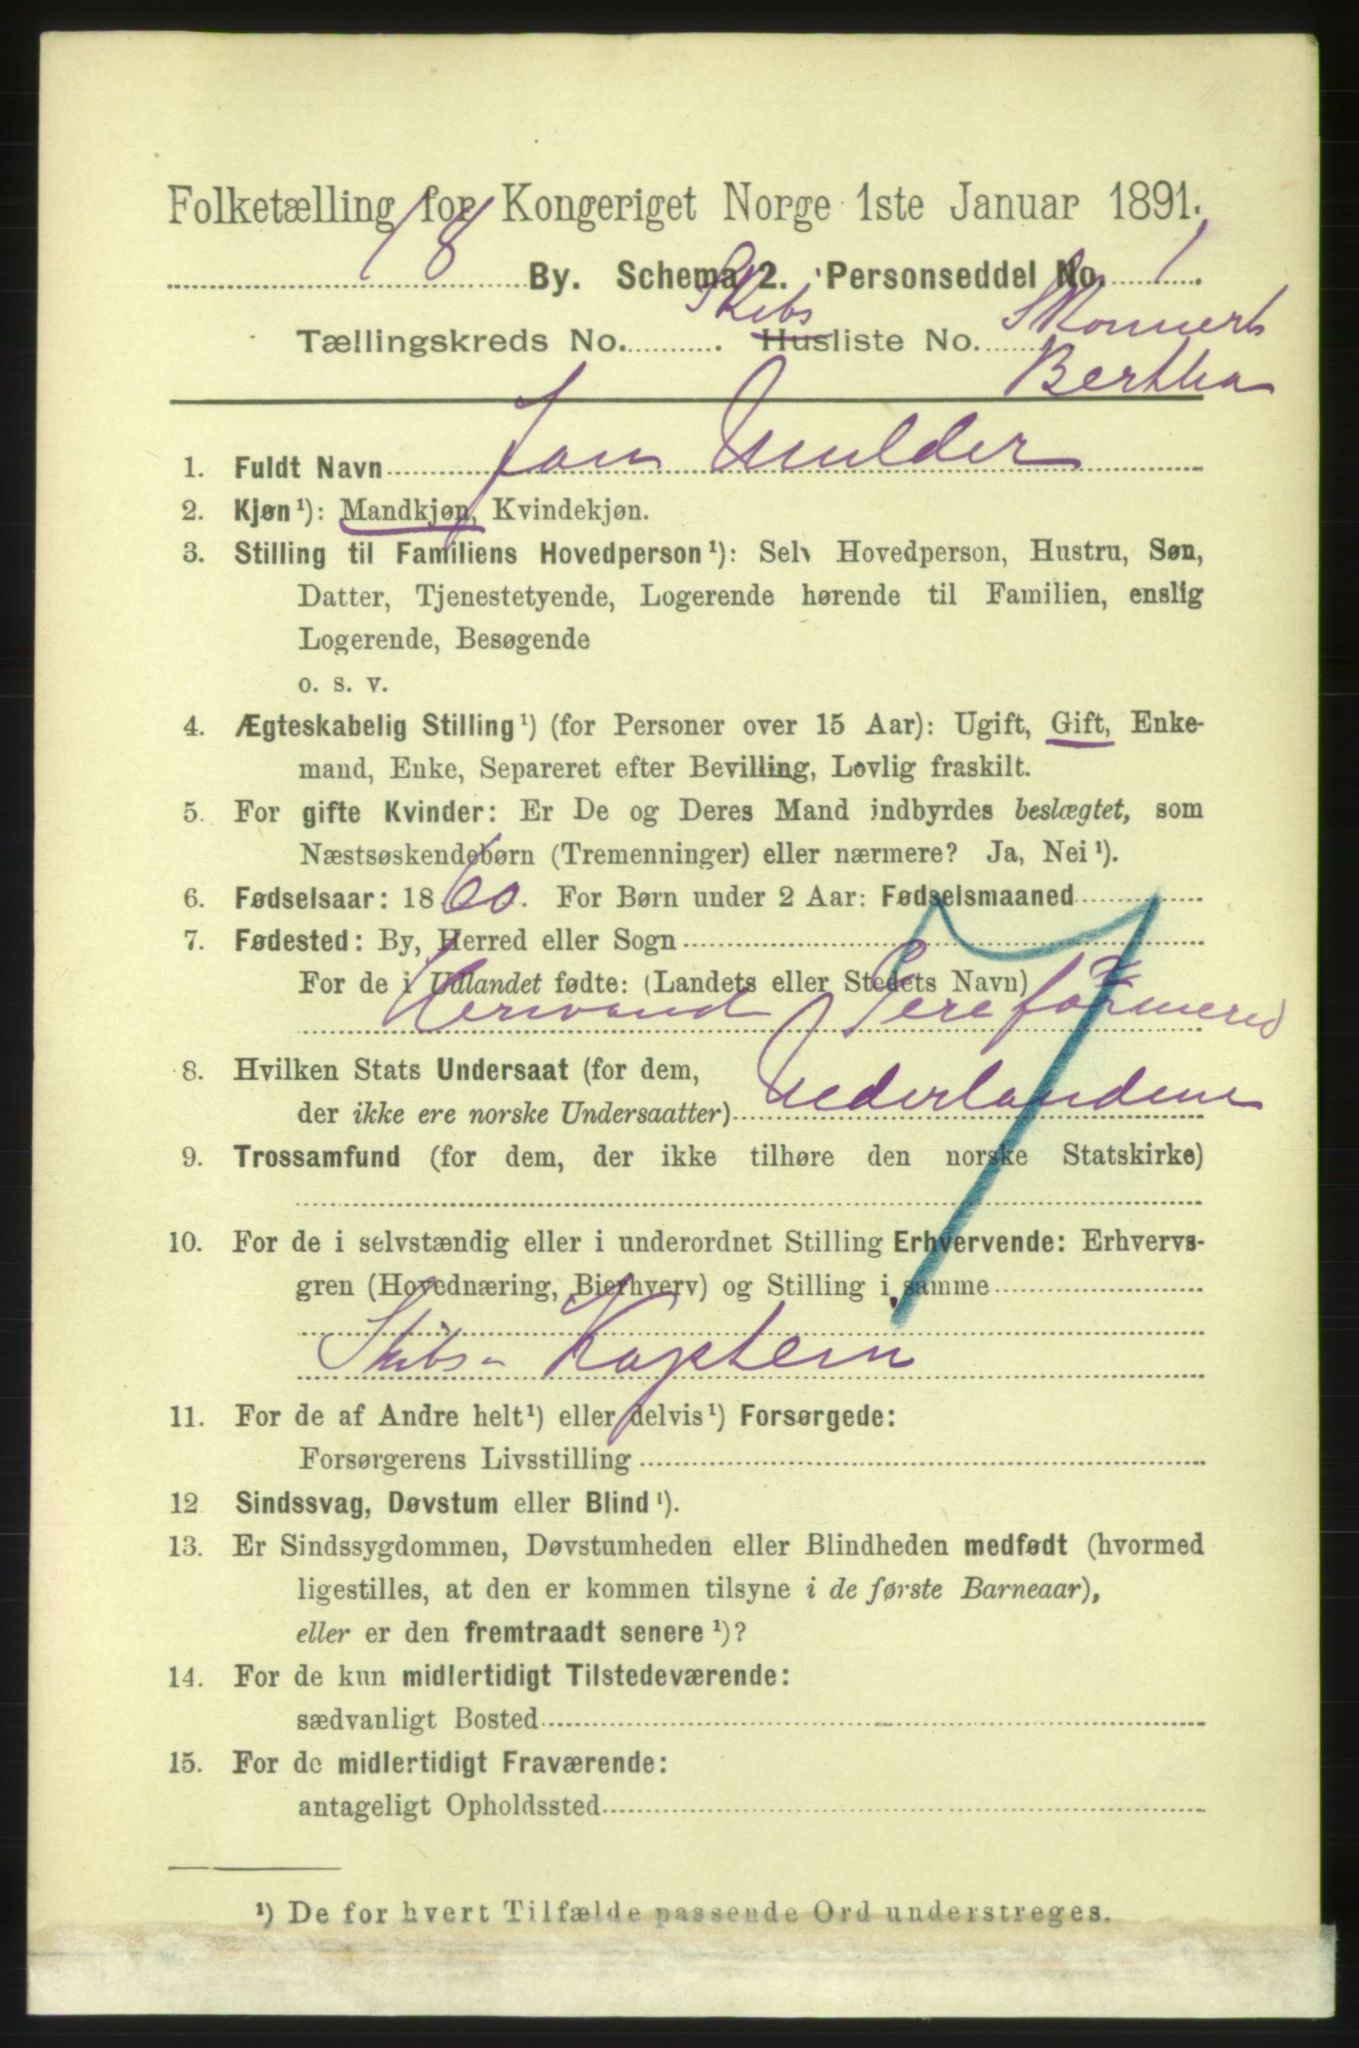 Folketælling for Kongeriget Norge 1ste Januar 1891.
18 By. Schema 2. Personseddel No. 1.
Tællingskreds No. . Skibs Husliste No. Skonnert
Bertha
1. Fuldt Navn Jan Mulder
2. Kjøn¹): Mandkjøn, Kvindekjøn.
3. Stilling til Familiens Hovedperson¹): Selv Hovedperson, Hustru, Søn,
Datter, Tjenestetyende, Logerende hørende til Familien, enslig
Logerende, Besøgende
o. s. v.
4. Ægteskabelig Stilling¹) (for Personer over 15 Aar): Ugift, Gift, Enke-
mand, Enke, Separeret efter Bevilling, Lovlig fraskilt.
5. For gifte Kvinder: Er De og Deres Mand indbyrdes beslægtet, som
Næstsøskendebørn (Tremenninger) eller nærmere? Ja, Nei¹).
6. Fødselsaar: 1860. For Børn under 2 Aar: Fødselsmaaned
7. Fødested: By, Herred eller Sogn
For de i Udlandet fødte: (Landets eller Stedets Navn)
8. Hvilken Stats Undersaat (for dem,
der ikke ere norske Undersaatter) Nederlandene
7
9. Trossamfund (for dem, der ikke tilhøre den norske Statskirke)
10. For de i selvstændig eller i underordnet Stilling Erhvervende: Erhvervs-
gren (Hovednæring, Bierhverv) og Stilling i samme
Skibs- Kaptein
11. For de af Andre helt¹) eller delvis¹) Forsørgede:
Forsørgerens Livsstilling
12 Sindssvag, Døvstum eller Blind¹).
13. Er Sindssygdommen, Døvstumheden eller Blindheden medfødt (hvormed
ligestilles, at den er kommen tilsyne i de første Barneaar),
eller er den fremtraadt senere¹)?
14. For de kun midlertidigt Tilstedeværende:
sædvanligt Bosted
15. For de midlertidigt Fraværende:
antageligt Opholdssted
¹) De for hvert Tilfælde passende Ord understreges.